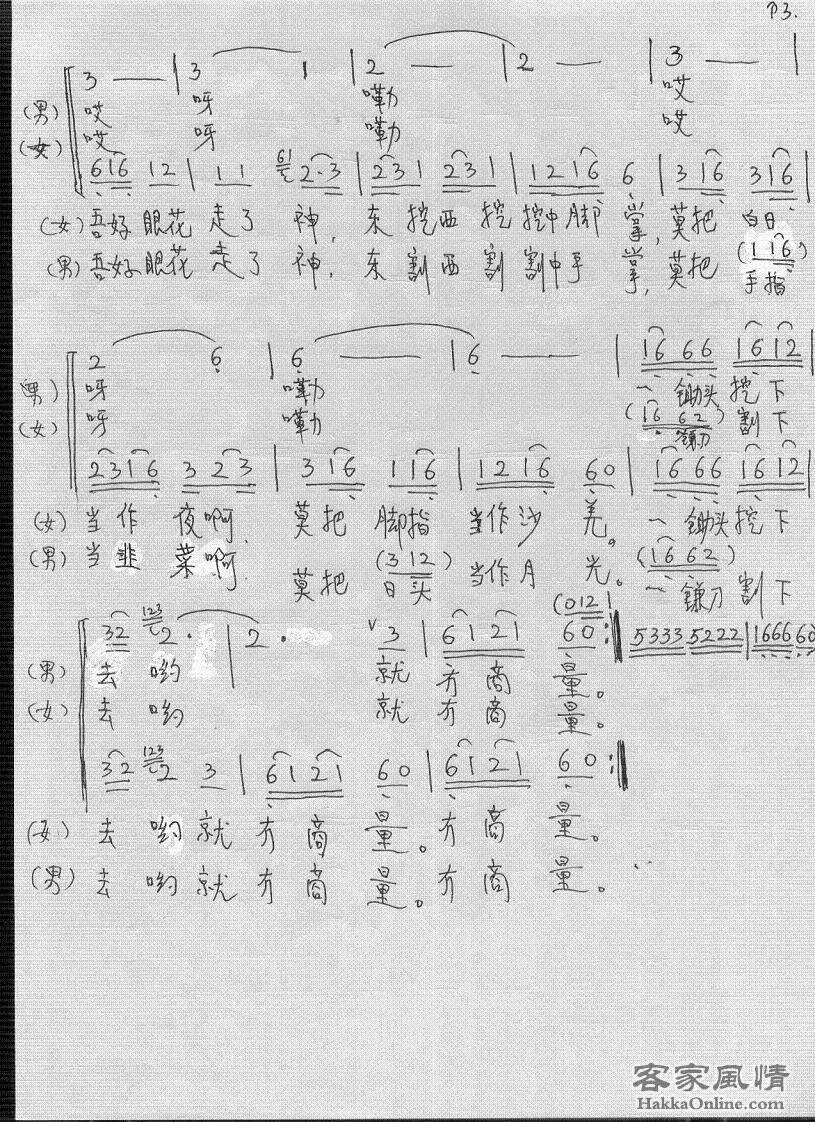 P3.
3 — | 3 1 | 2 — | 2 — | 3 — |
(男) 哎 呀 嘞 哎
(女) 哎 呀 嘞 哎
616 12 | 11 61 2·3 | 231 231 | 12 16 6 | 3 16 316 |
(女) 吾好 眼花 走了 神, 东 挖西 挖 挖中 脚 掌, 莫把 白日
(116)
(男) 吾好 眼花 走了 神, 东 割西 割 割中手 掌, 莫把 手指
2 6 | 6 — | 6 — | 16 66 16 12 |
(男) 呀 嘞 一 锄头 挖下
(16 62)
(女) 呀 嘞 一 镰刀 割下
2316 3 23 | 3 16 1 16 | 12 16 60 | 16 66 16 12 |
(女) 当作 夜啊, 莫把 脚指 当作沙 羌。 一 锄头挖下
(312) (16 62)
(男) 当韭 菜啊, 莫把 日头 当作月 光。 一 镰刀割下
(012 |
32 123 2· | 2· ∨ 3 | 61 21 60 :‖ 5333 5222 | 1666 60
(男) 去 哟 就 冇商 量。
(女) 去 哟 就 冇商 量。
32 123 2 3 | 61 21 60 | 61 21 60 :‖
(女) 去 哟就 冇商 量。冇商 量。
(男) 去 哟就 冇商 量。冇商 量。
客家風情
HakkaOnline.com